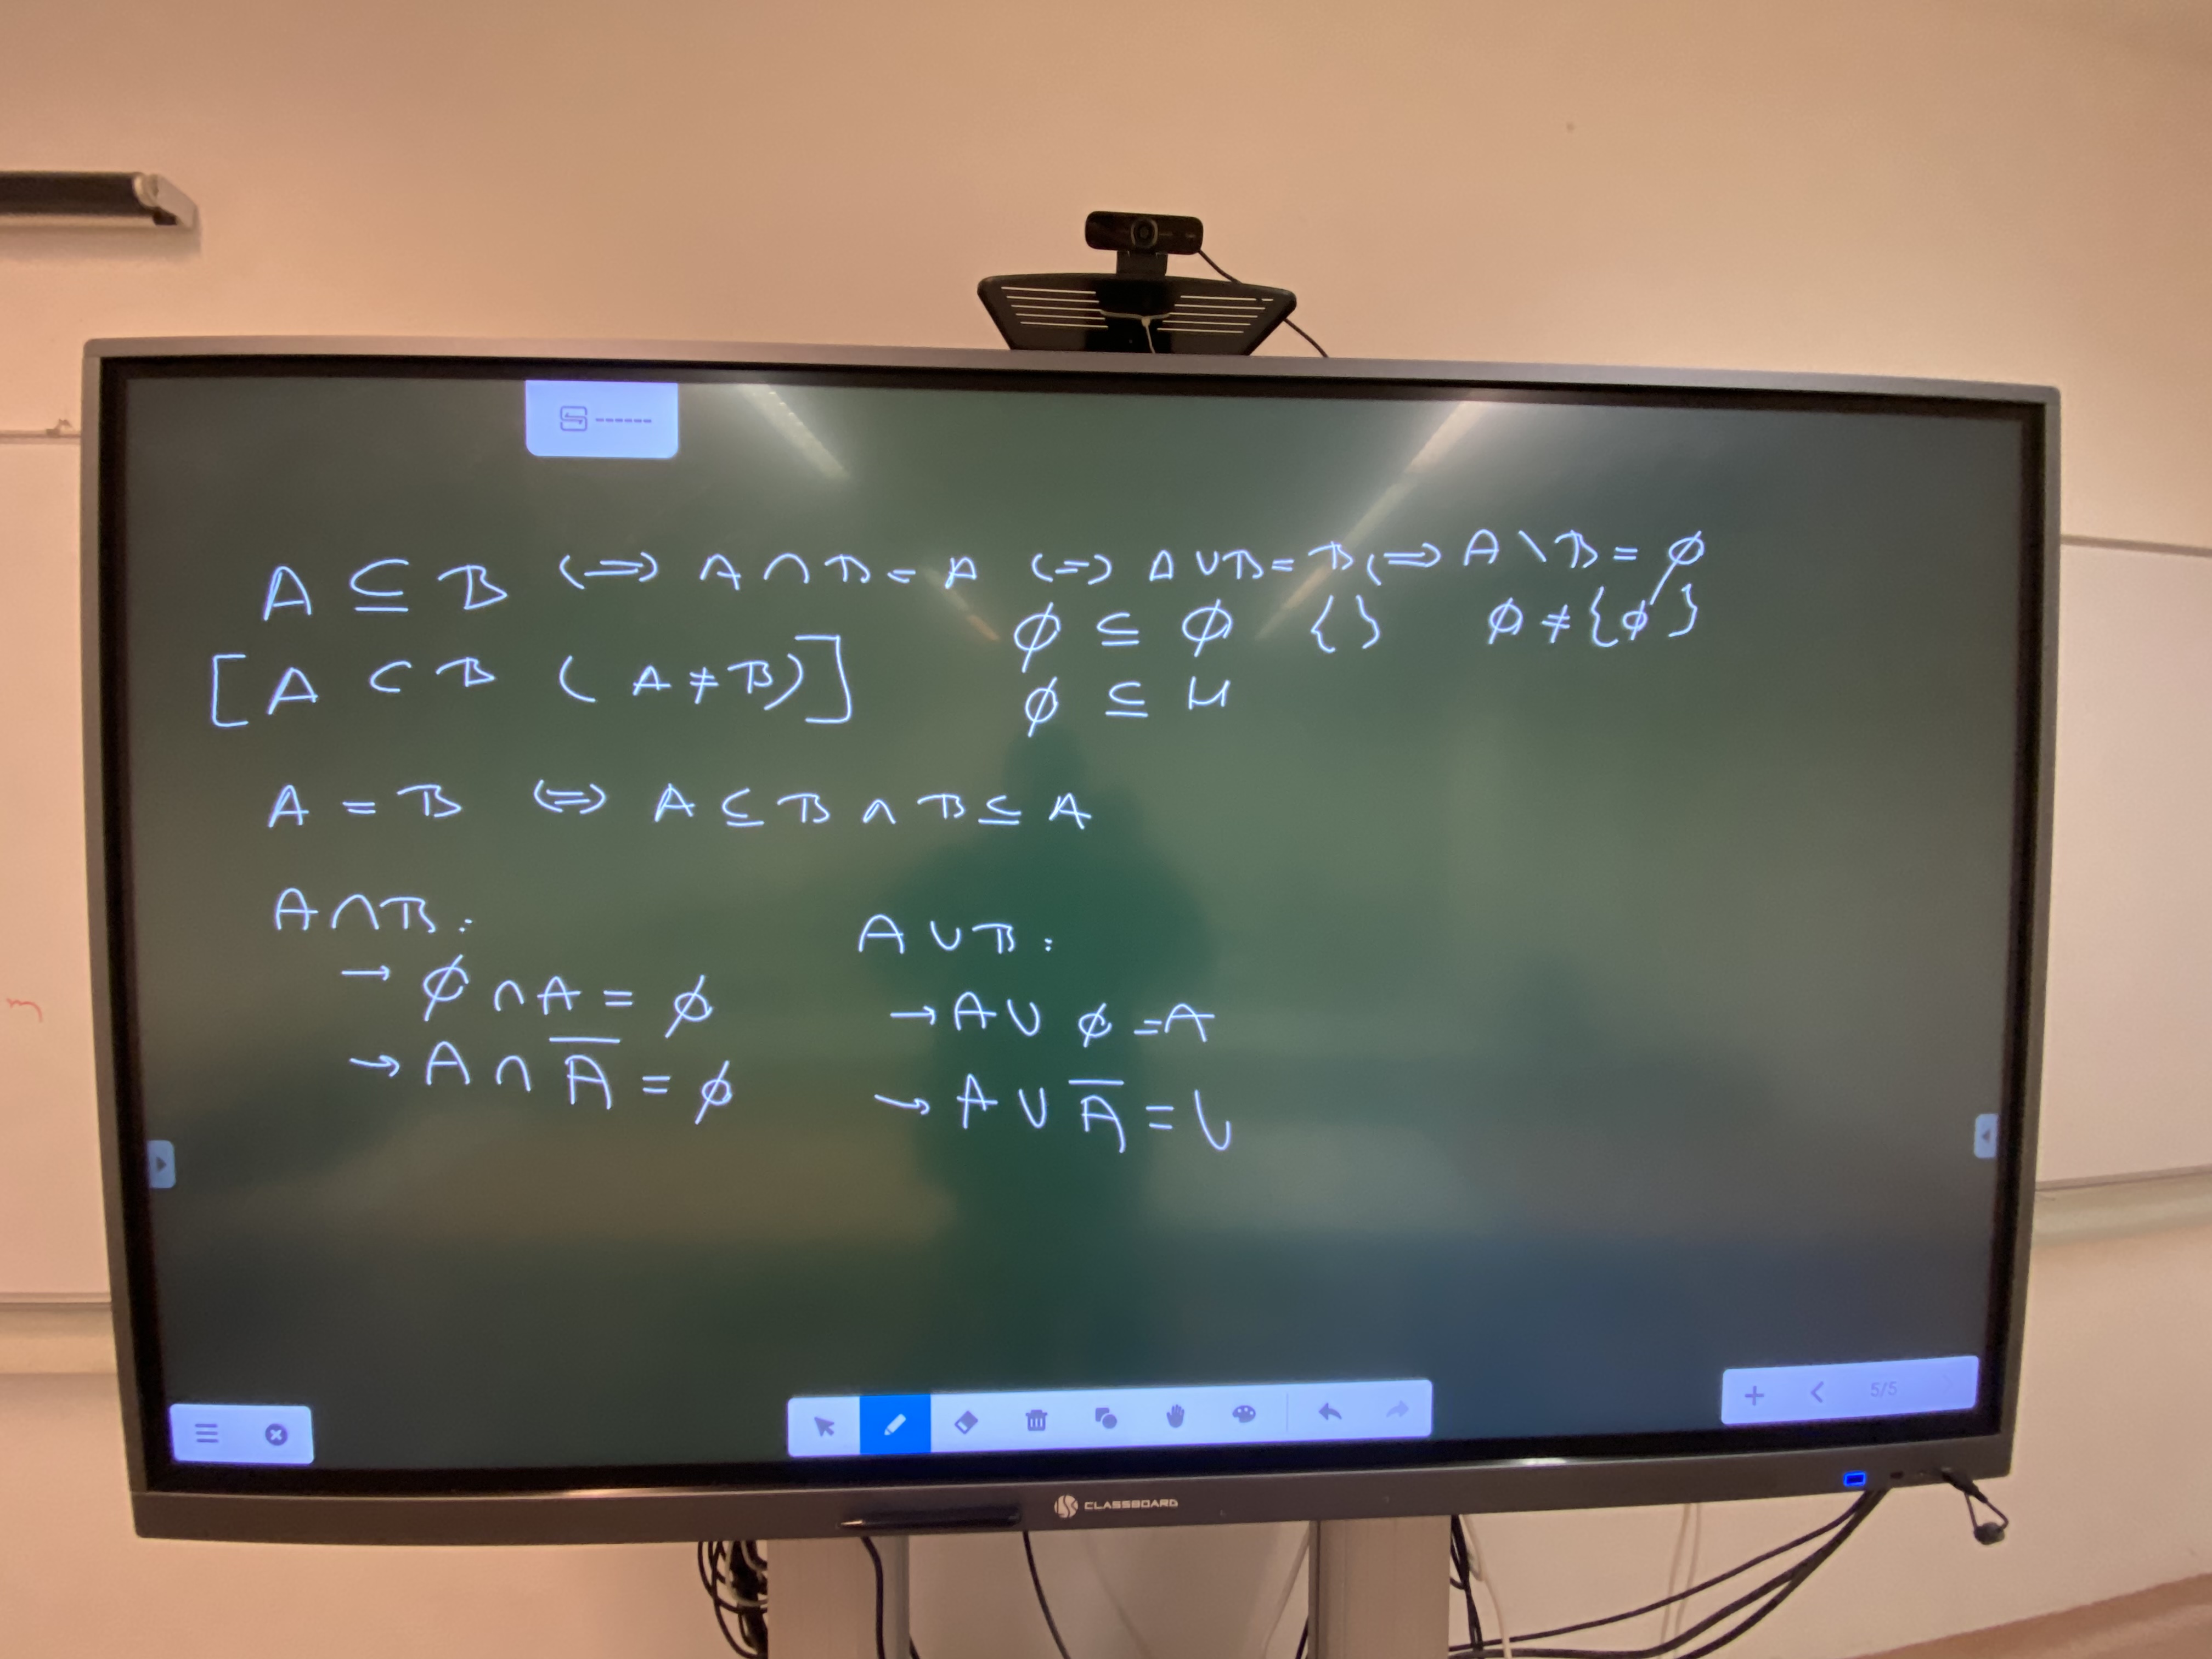 A ⊆ B ⇔ A ∩ B = A ⇔ A ∪ B = B ⇔ A \ B = ∅
∅ ⊆ ∅ { } ∅ ≠ {∅}
[A ⊂ B (A ≠ B)]
∅ ⊆ H
A = B ⇔ A ⊆ B ∧ B ⊆ A
A ∩ B:
→ ∅ ∩ A = ∅
→ A ∩ A̅ = ∅
A ∪ B:
→ A ∪ ∅ = A
→ A ∪ A̅ = U
5/5
CLASSBOARD